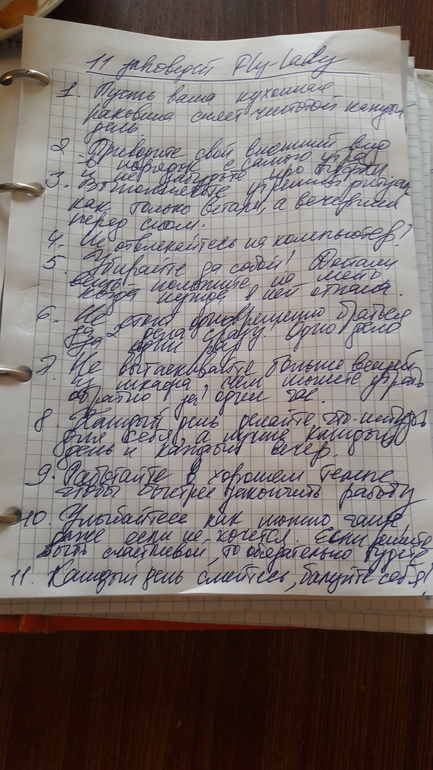 11 заповедей Fly-Lady
1. Пусть ваша кухонная
раковина сияет чистотой каждый
день.
2. Приведите свой внешний вид
в порядок с самого утра
и не забудьте про
3. Выполняйте утренние
как только встали, а вечерния
перед сном.
4. Не отвлекайтесь на компьютер!
5. Убирайте за собой! Достали
вещь положите на место
когда нужда в ней отпала.
6. Не стоит одновременно браться
за 2 дела сразу. Одно дело
за один раз!
7. Не вытаскивайте больше вещей
из шкафа, чем можете убрать
обратно за один час.
8. Каждый день делайте что-нибудь
для себя, а лучше каждый
день и каждый вечер.
9. Работайте в хорошем темпе
чтобы быстрее закончить работу
10. Улыбайтесь как можно чаще
даже если не хочется. Если решите
быть счастливой, то обязательно будете
11. Каждый день смейтесь, балуйте себя!